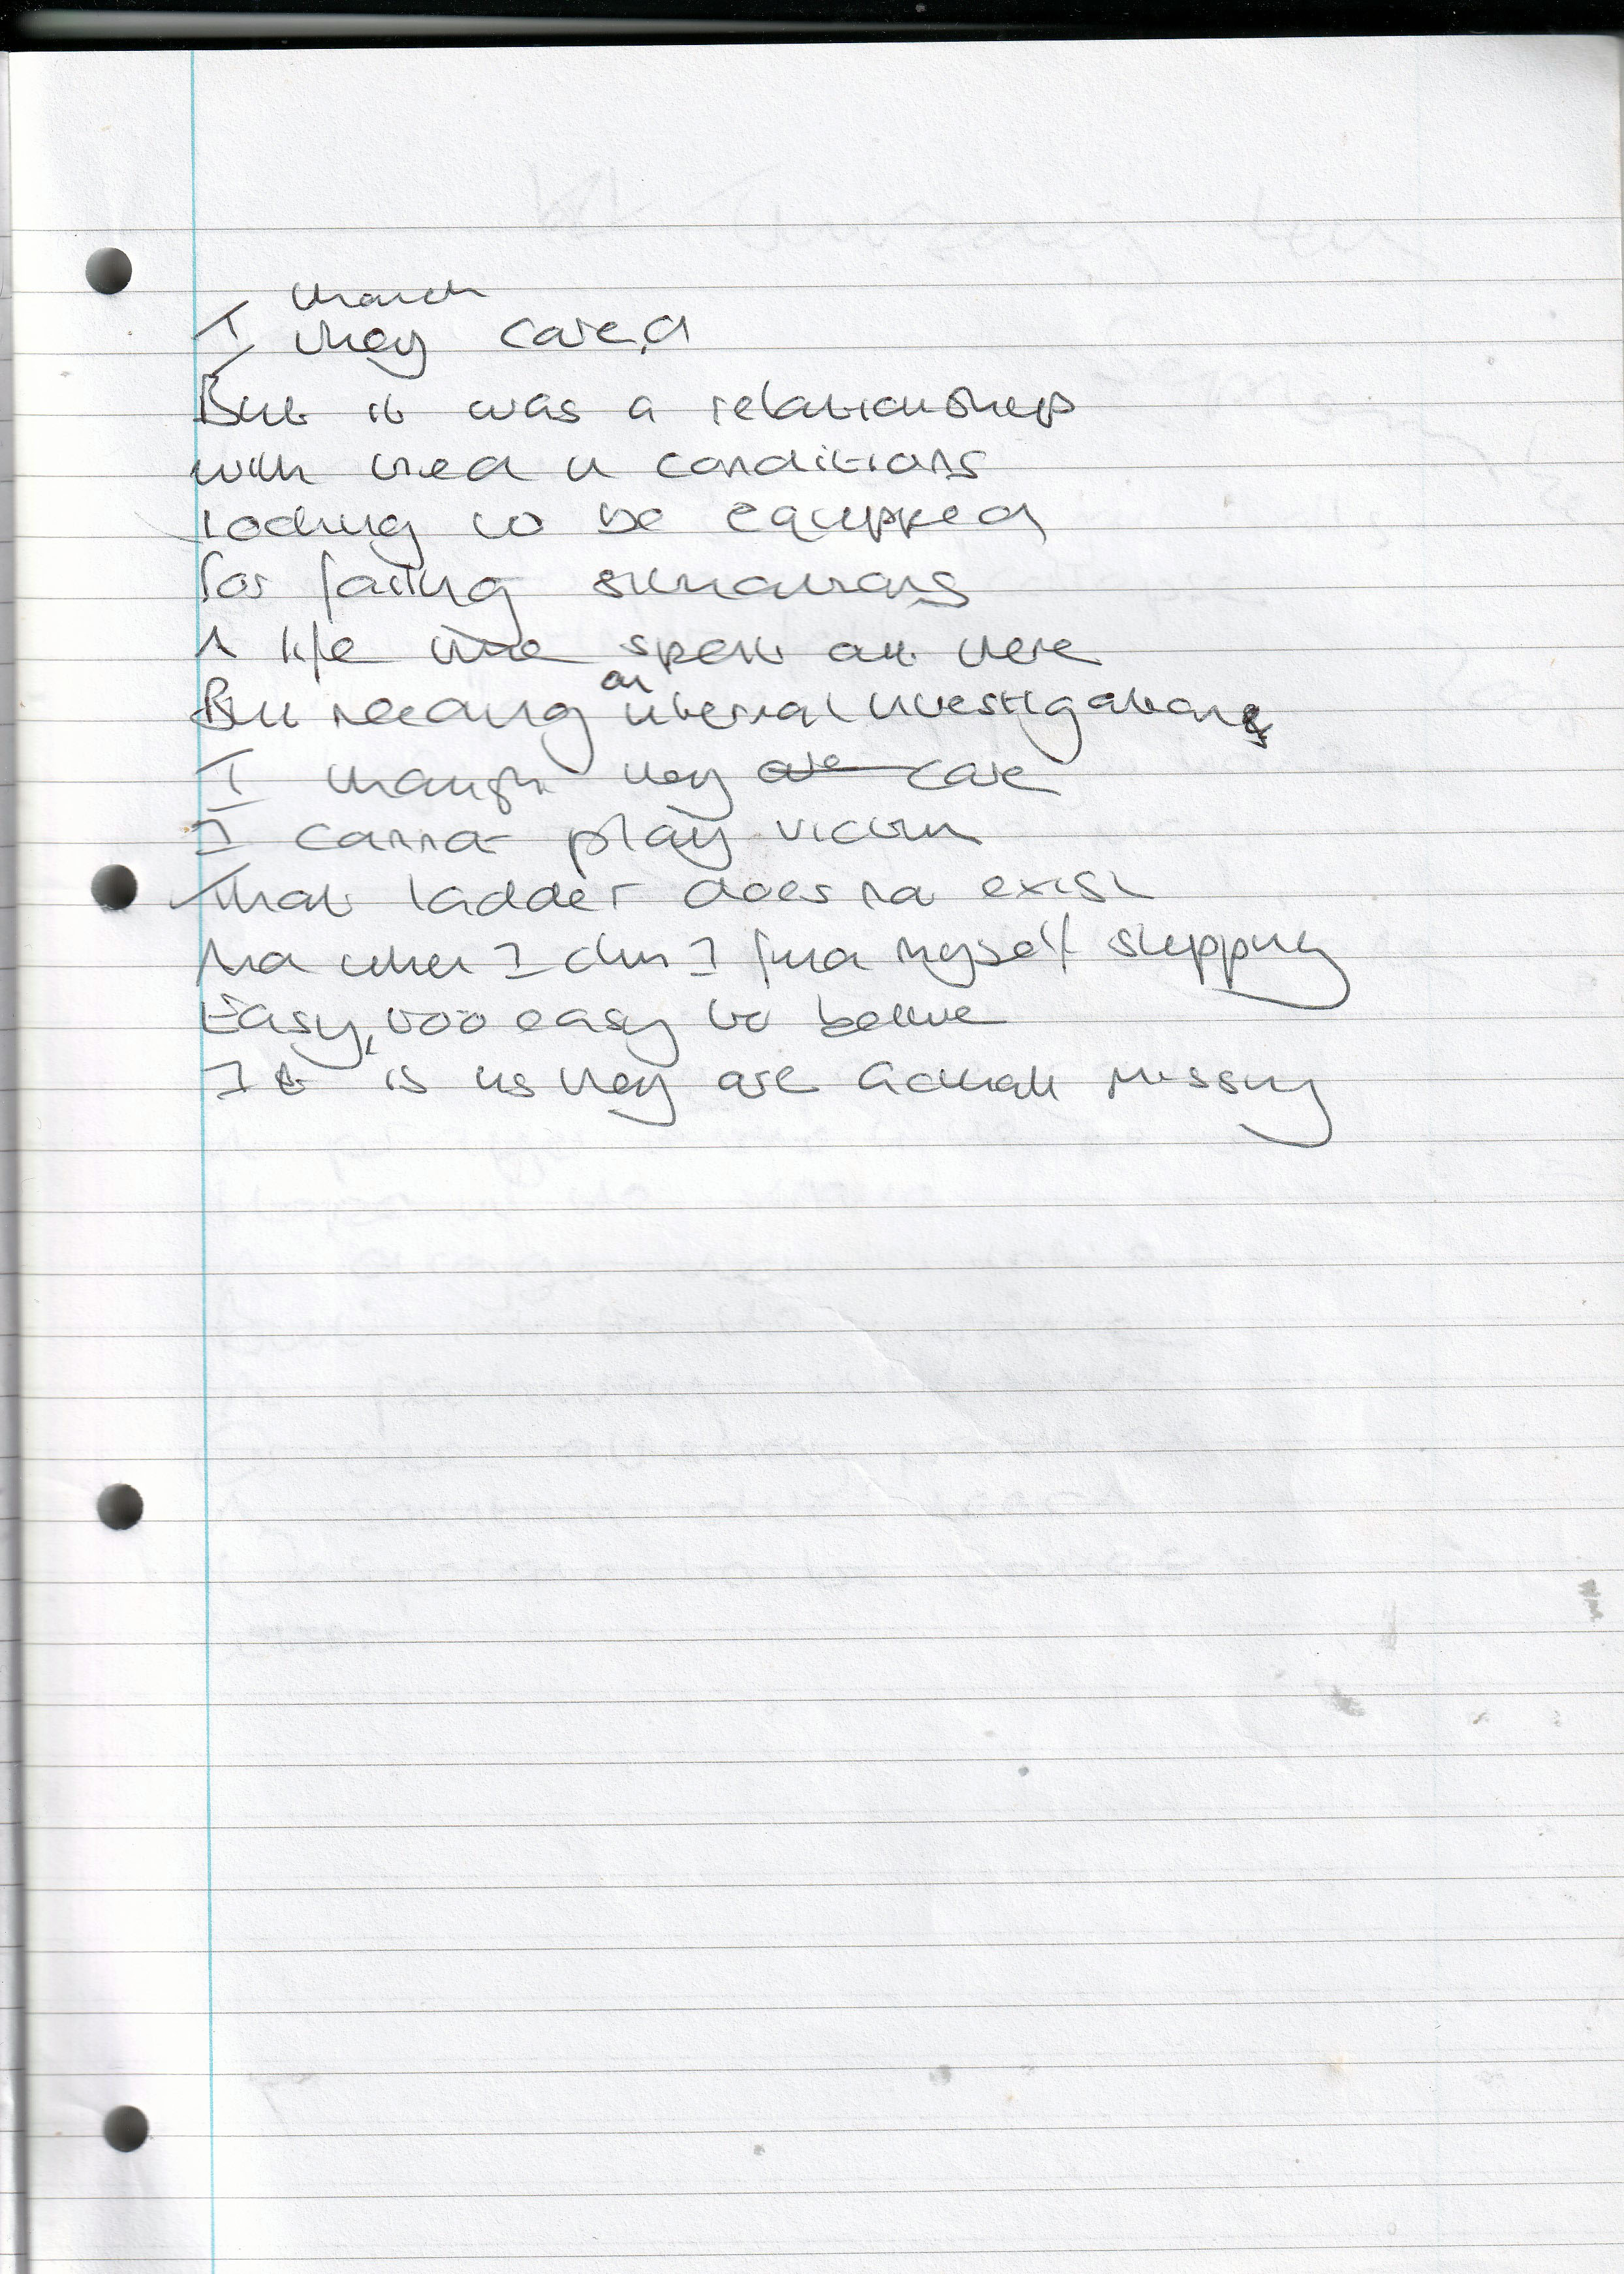 I thought
they cared
But it was a relationship
with tied in conditions
to be equipped
for facing situations
A life time spent out there
But needing an internal investigations
I thought they are care
I cannot play victim
That ladder does not exist
And when I climb I find myself slipping
Easy, too easy to believe
It is us they are actually missing